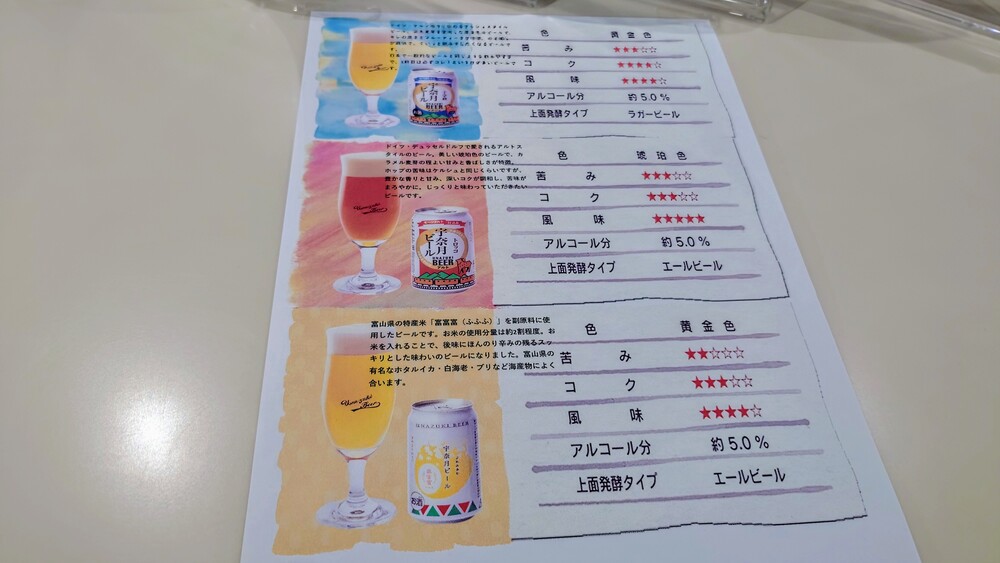 色 黄金色
苦み ★★★☆☆
コク ★★★★☆
風味 ★★★★☆
アルコール分 約5.0%
上面発酵タイプ ラガービール
宇奈月ビール
BEER
ドイツ・デュッセルドルフで愛されるアルトス
タイルのビール。美しい琥珀色のビールで、カ
ラメル麦芽の程よい甘みと香ばしさが特徴。
ホップの苦味はケルシュと同じくらいですが、
豊かな香りと甘み、深いコクが調和し、苦味が
まろやかに。じっくりと味わっていただきたい
ビールです。
色 琥珀色
苦み ★★★☆☆
コク ★★★☆☆
風味 ★★★★★
アルコール分 約5.0%
上面発酵タイプ エールビール
宇奈月ビール
トロッコ
BEER
富山県の特産米「富富富（ふふふ）」を副原料に使
用したビールです。お米の使用分量は約2割程度。お
米を入れることで、後味にほんのり辛みの残るスッ
キリとした味わいのビールになりました。富山県の
有名なホタルイカ・白海老・ブリなど海産物によく
合います。
色 黄金色
苦み ★★☆☆☆
コク ★★★☆☆
風味 ★★★★☆
アルコール分 約5.0%
上面発酵タイプ エールビール
Unazuki
Beer
UNAZUKI BEER
宇奈月ビール
お酒